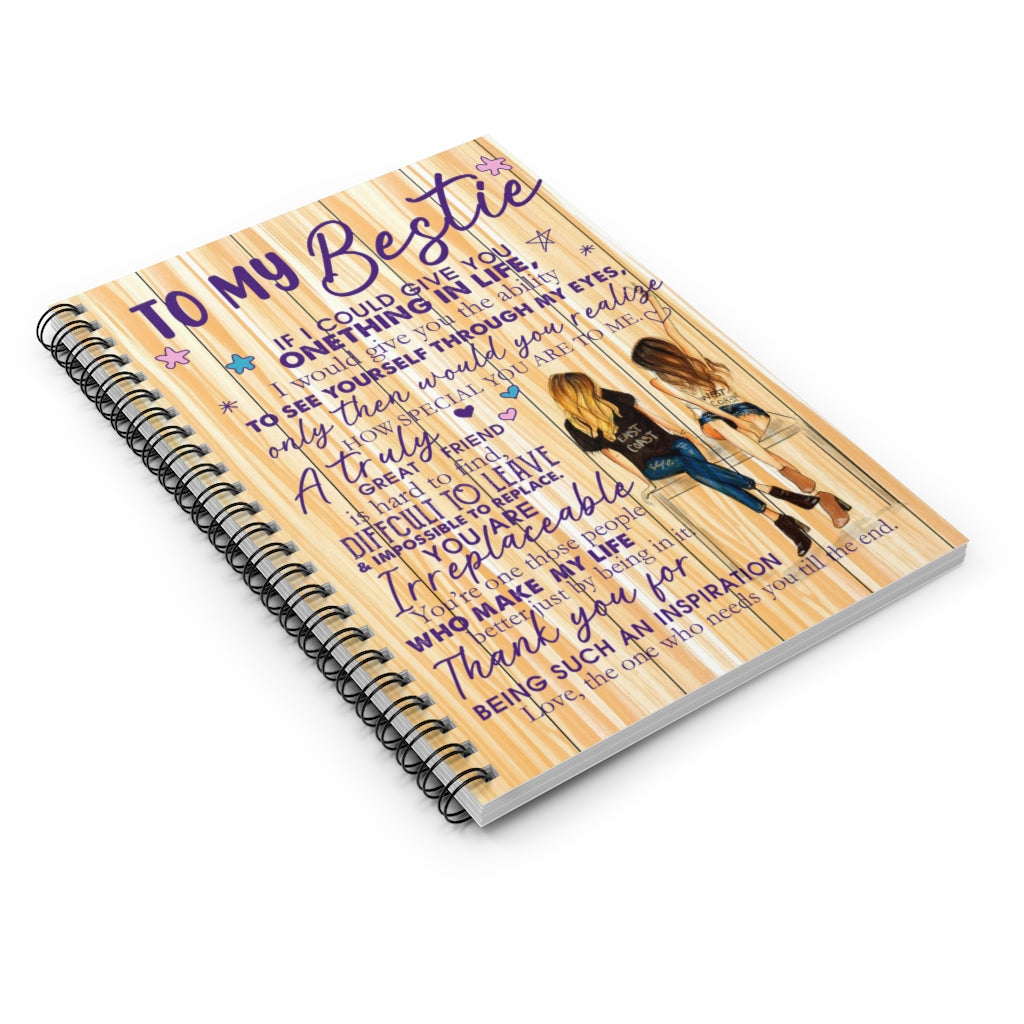 TO MY Bestie
IF I COULD GIVE YOU
ONETHING IN LIFE,
I would give you the ability
TO SEE YOURSELF THROUGH MY EYES,
only then would you realize
HOW SPECIAL YOU ARE TO ME.
A truly
GREAT FRIEND
is hard to find,
DIFFCULT TO LEAVE
& IMPOSSIBLE TO REPLACE.
YOU ARE
Irreplaceable
You're one those people
WHO MAKE MY LIFE
better just by being in it.
Thank you for
BEING SUCH AN INSPIRATION
Love, the one who needs you till the end.
EAST
COAST
WEST
COAST